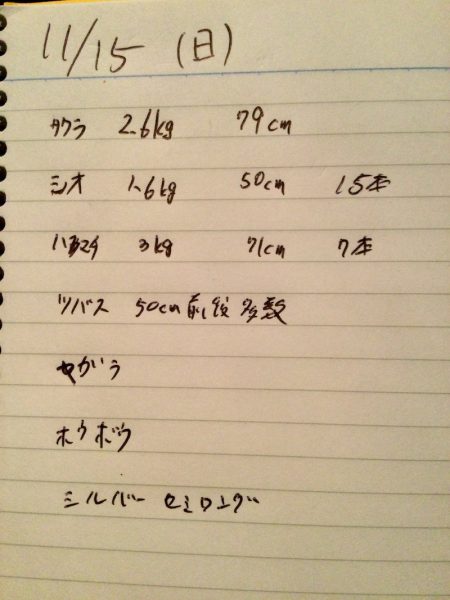 11/15 (日)
サワラ 2.6kg 79cm
シオ 1.6kg 50cm 15本
ハマチ 3kg 71cm 7本
ツバス 50cm前後多数
やがら
ホウボウ
シルバー セミロング